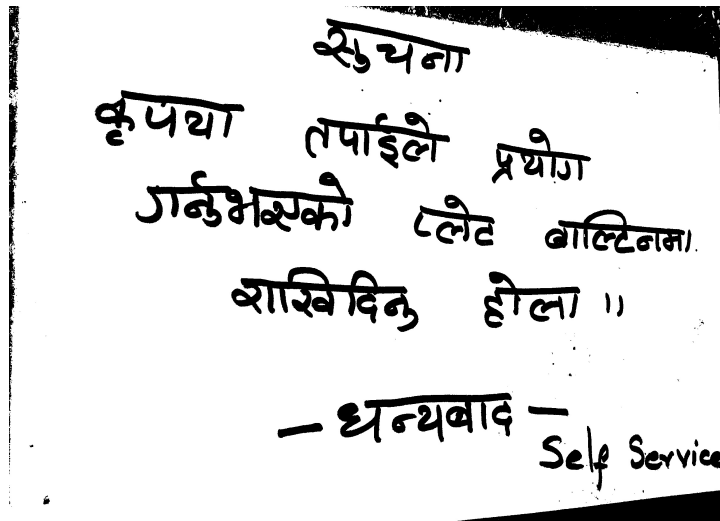 सुचना
कृपया तपाईले प्रयोग
गर्नुभएको प्लेट बाल्टिनमा
राखिदिनु होला ॥
- धन्यबाद -
Self Service